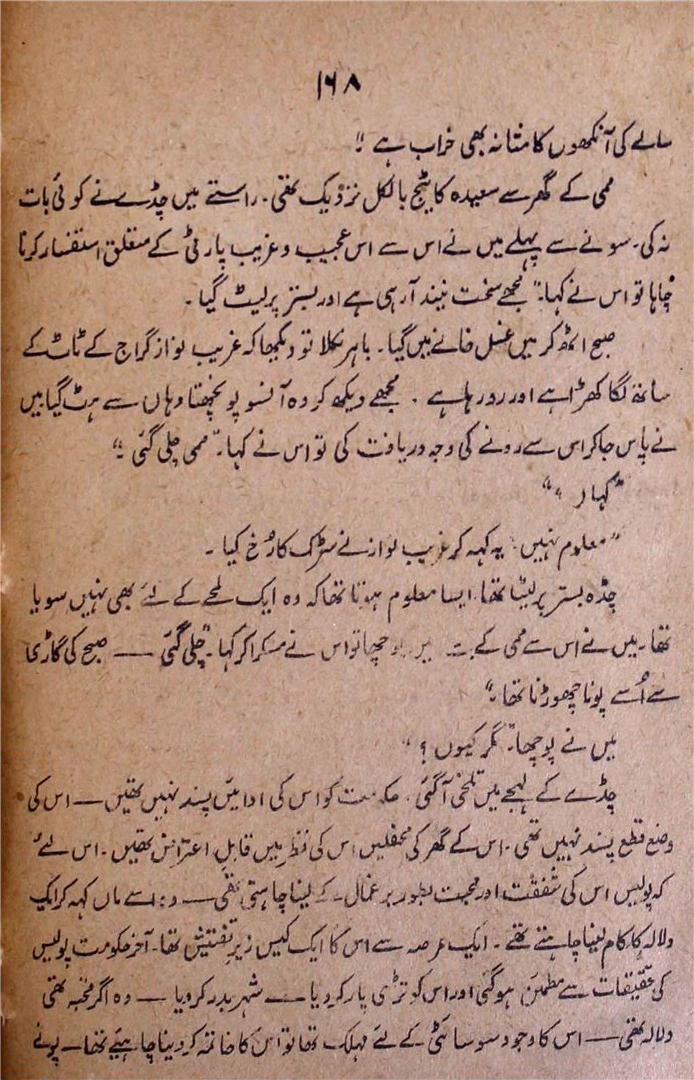 ۱۶۸
سالے کی آنکھوں کا مثانہ بھی خراب ہے "
ممی کے گھر سے سعیدہ کاٹیج بالکل نزدیک تھی۔ راستے میں چڈے نے کوئی بات
نہ کی۔ سونے سے پہلے میں نے اس سے اس عجیب و غریب پارٹی کے متعلق استفسار کرنا
چاہا تو اس نے کہا۔" مجھے سخت نیند آرہی ہے اور بستر پر لیٹ گیا ۔
صبح اٹھ کر میں غسل خانے میں گیا۔ باہر نکلا تو دیکھا کہ غریب نواز گراج کے ٹاٹ کے
ساتھ لگا کھڑا ہے اور رو رہا ہے ۔ مجھے دیکھ کر وہ آنسو پونچھتا وہاں سے ہٹ گیا میں
نے پاس جاکر اس سے رونے کی وجہ دریافت کی تو اس نے کہا۔" ممی چلی گئی ؛"
" کہاں ؟"
" معلوم نہیں" یہ کہہ کر غریب نواز نے سڑک کا رُخ کیا ۔
چڈہ بستر پر لیٹا تھا۔ ایسا معلوم ہوتا تھا کہ وہ ایک لمحے کے لئے بھی نہیں سویا
تھا۔ میں نے اس سے ممی کے پوچھا تو اس نے مسکرا کر کہا۔" چلی گئی — صبح کی گاڑی
سے اُسے پونا چھوڑنا تھا۔"
میں نے پوچھا۔" مگر کیوں ؟"
چڈے کے لہجے میں تلخی آگئی۔ حکومت کو اس کی ادائیں پسند نہیں تھیں — اس کی
وضع قطع پسند نہیں تھی۔ اس کے گھر کی محفلیں اس کی نظر میں قابلِ اعتراض تھیں۔ اس لئے
کہ پولیس اس کی شفقت اور محبت بطور یرغمال کے لینا چاہتی تھی — وہ اسے ماں کہہ کر ایک
دلالہ کا کام لینا چاہتے تھے۔ ایک عرصہ سے اس کا ایک کیس زیرِ تفتیش تھا۔ آخر حکومت پولیس
کی تحقیقات سے مطمئن ہوگئی اور اس کو تڑی پار کر دیا — شہر بدر کر دیا — وہ اگر قحبہ تھی
دلالہ تھی — اس کا وجود سوسائٹی کے لئے مہلک تھا تو اس کا خاتمہ کر دینا چاہیئے تھا — پونے